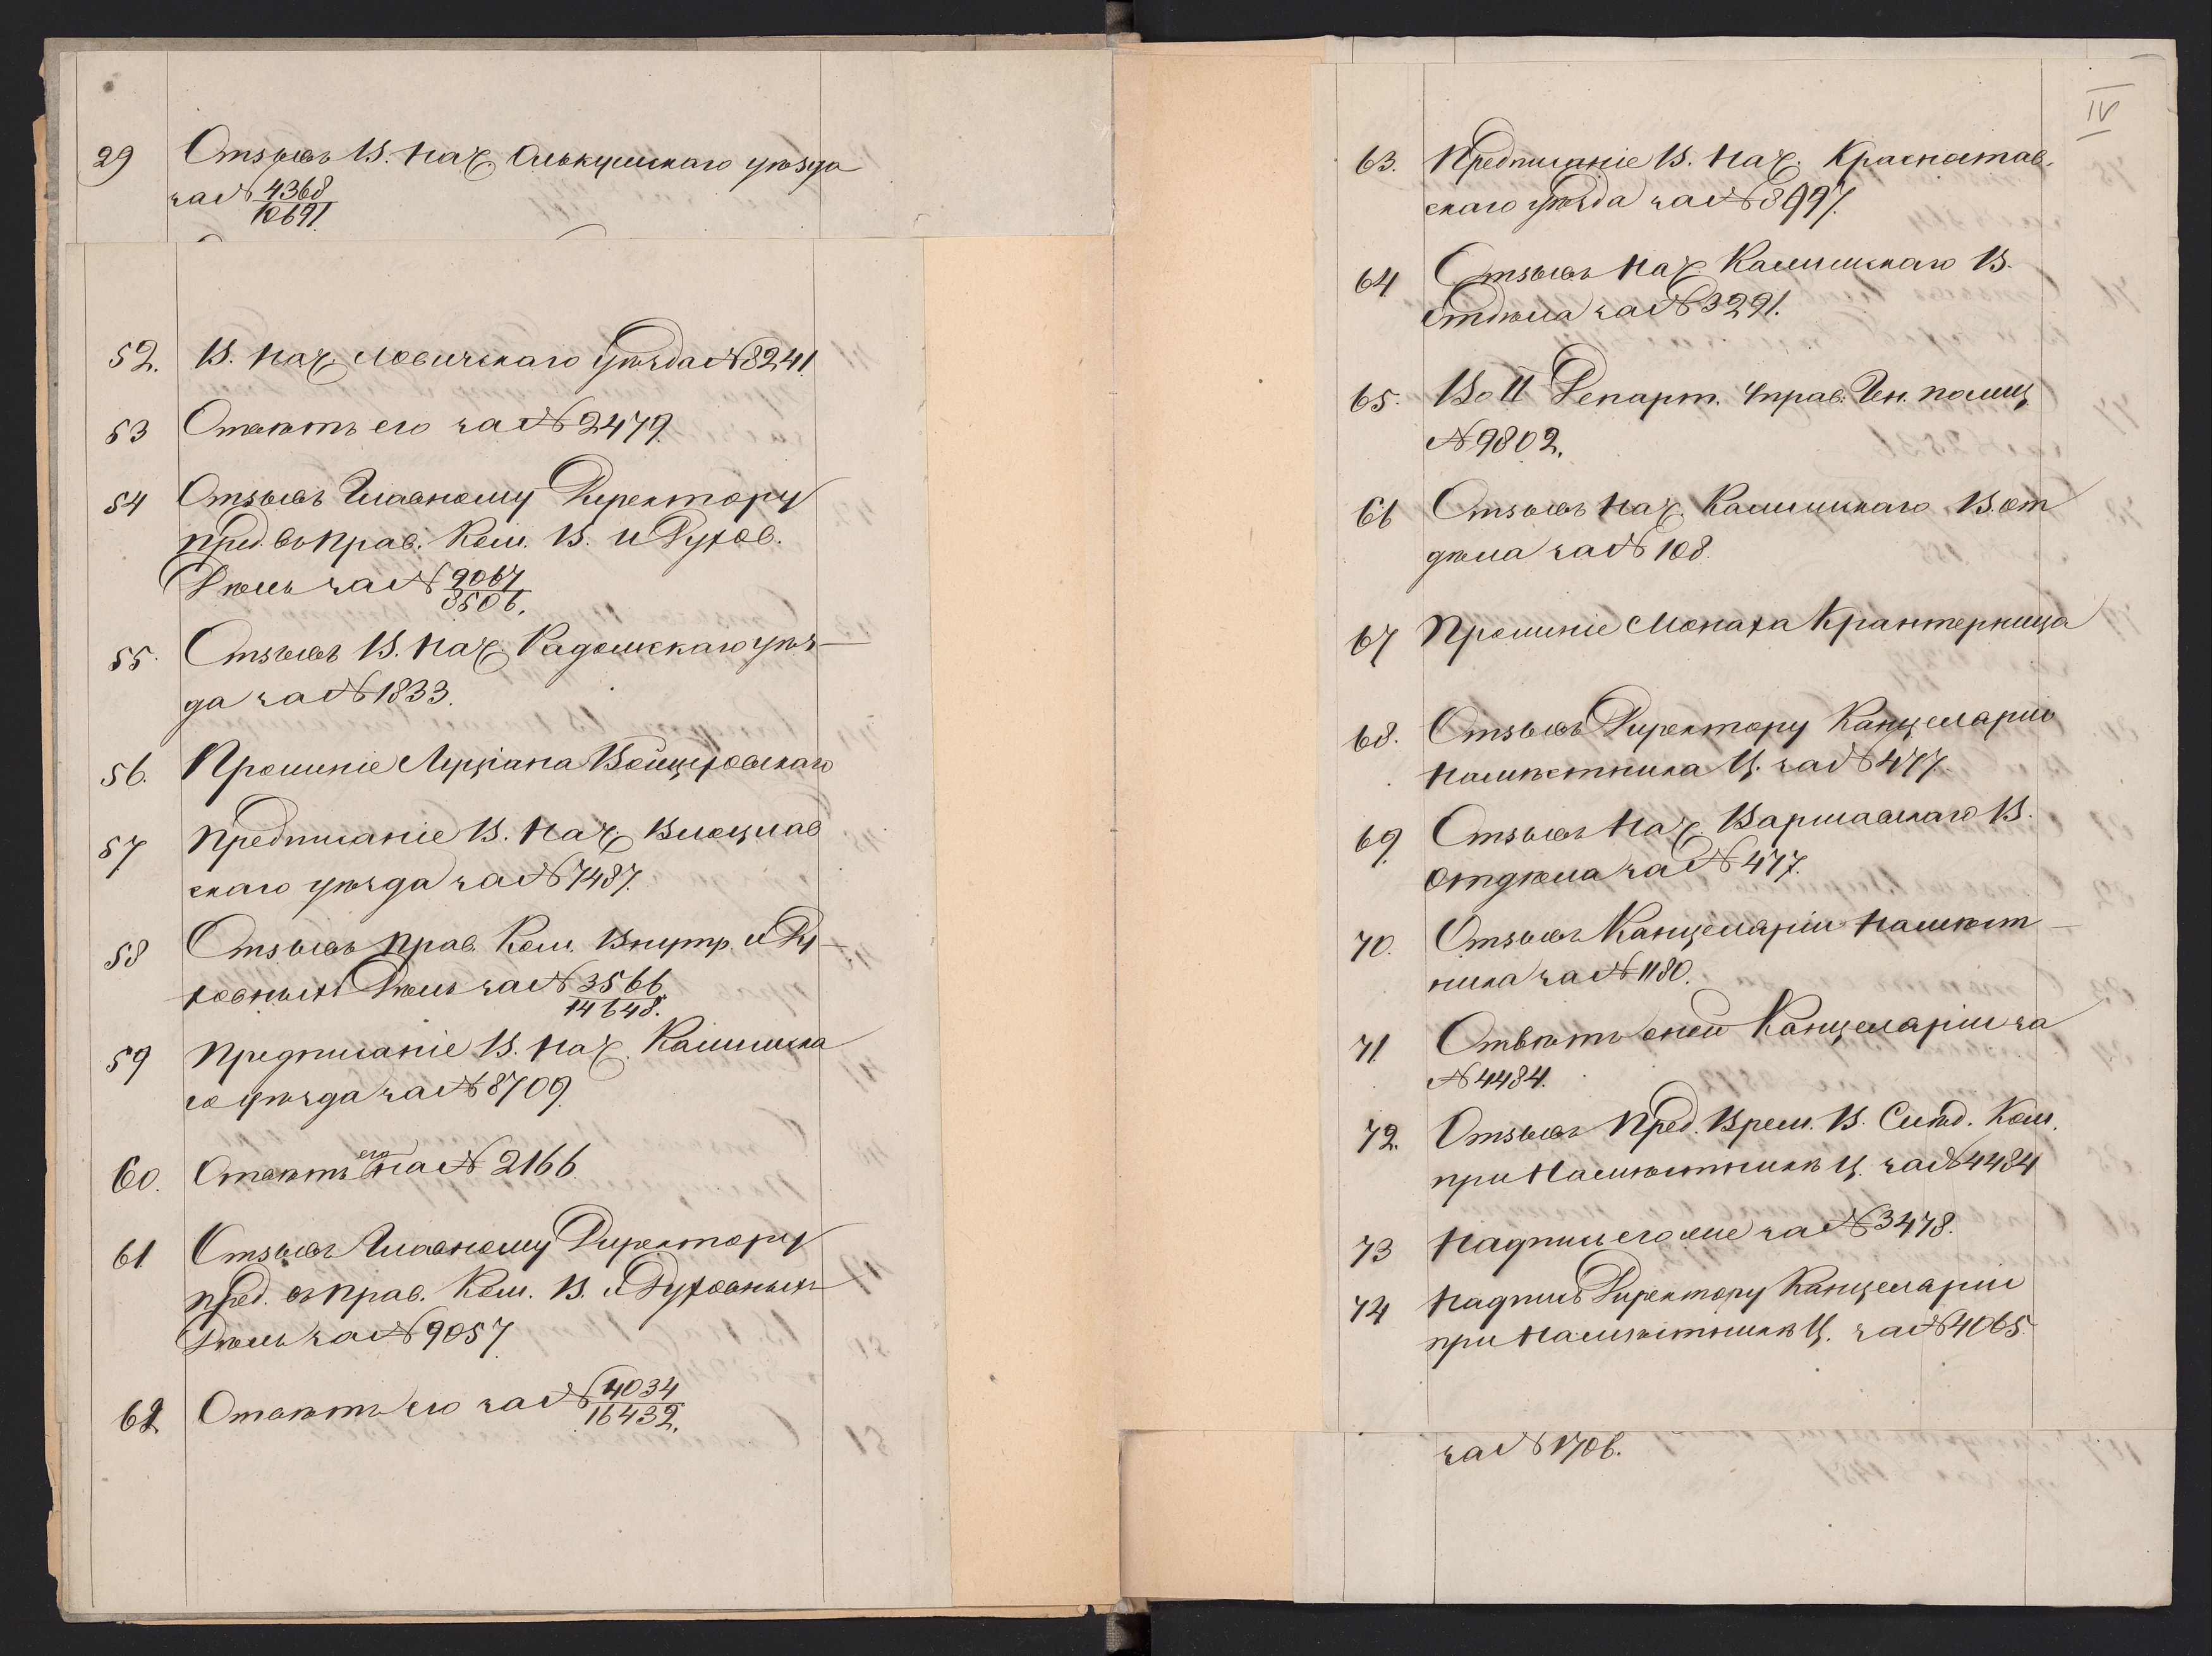 29 Отзывъ В. Нач. Олькушскаго уѣзда
за № 4368/10691.
52. В. Нач. Ловичскаго Уѣзда № 8241.
53 Отвѣтъ его за № 2479.
54 Отзывъ Главному Директору
пред. въ Прав. Ком. В. и Духов.
Дѣлъ за № 9067/8506.
55. Отзывъ В. Нач. Радомскаго уѣз-
да за № 1833.
56. Прошеніе Луціана Войцеховскаго
57 Предписаніе В. Нач. Влоцлав
скаго уѣзда за № 7487.
58 Отзывъ Прав. Ком. Внутр. и Ду-
ховныхъ Дѣлъ за № 3566/14648.
59 Предписаніе В. Нач. Калишска
го уѣзда за № 8709.
60. Отвѣтъ его на № 2166.
61 Отзывъ Главному Директору
пред. въ Прав. Ком. В. и Духовныхъ
Дѣлъ за № 9057
62 Отвѣтъ его за № 4034/16432.
IV
63. Предписаніе В. Нач. Красностав-
скаго уѣзда за № 8997.
64. Отзывъ Нач. Калишскаго В.
Отдѣла за № 3291.
65. Во II Департ. Управ. Ген. полиц
№ 9802.
66 Отзывъ Нач. Калишскаго В. от
дѣла за № 108.
67 Прошеніе Монаха
68. Отзывъ Директору Канцеляріи
Намѣстника Ц. за № 477.
69. Отзывъ Нач. Варшавскаго В.
Отдѣла за № 477.
70. Отзывъ Канцеляріи Намѣст-
ника за № 1180.
71. Отвѣтъ оной Канцеляріи за
№ 4484.
72. Отзывъ Пред. Врем. В. Слѣд. Ком.
при Намѣстникѣ Ц. за № 4484
73 Надпись его же за № 3478.
74 Надпись Директору Канцеляріи
при Намѣстникѣ Ц. за № 4065.
за № 1706.